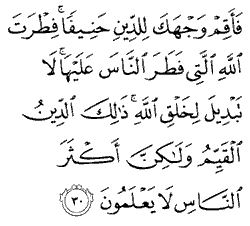 فَأَقِمْ وَجْهَكَ لِلدِّينِ حَنِيفًا ۚ فِطْرَتَ
ٱللَّهِ ٱلَّتِى فَطَرَ ٱلنَّاسَ عَلَيْهَا ۚ لَا
تَبْدِيلَ لِخَلْقِ ٱللَّهِ ۚ ذَٰلِكَ ٱلدِّينُ
ٱلْقَيِّمُ وَلَٰكِنَّ أَكْثَرَ
ٱلنَّاسِ لَا يَعْلَمُونَ ٣٠